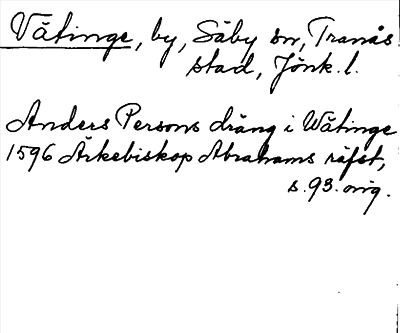 Vätinge, by, Säby sn, Tranås
stad, Jönk. l.
Anders Persons dräng i Wätinge
1596 Ärkebiskop Abrahams räfst,
s. 93. orig.